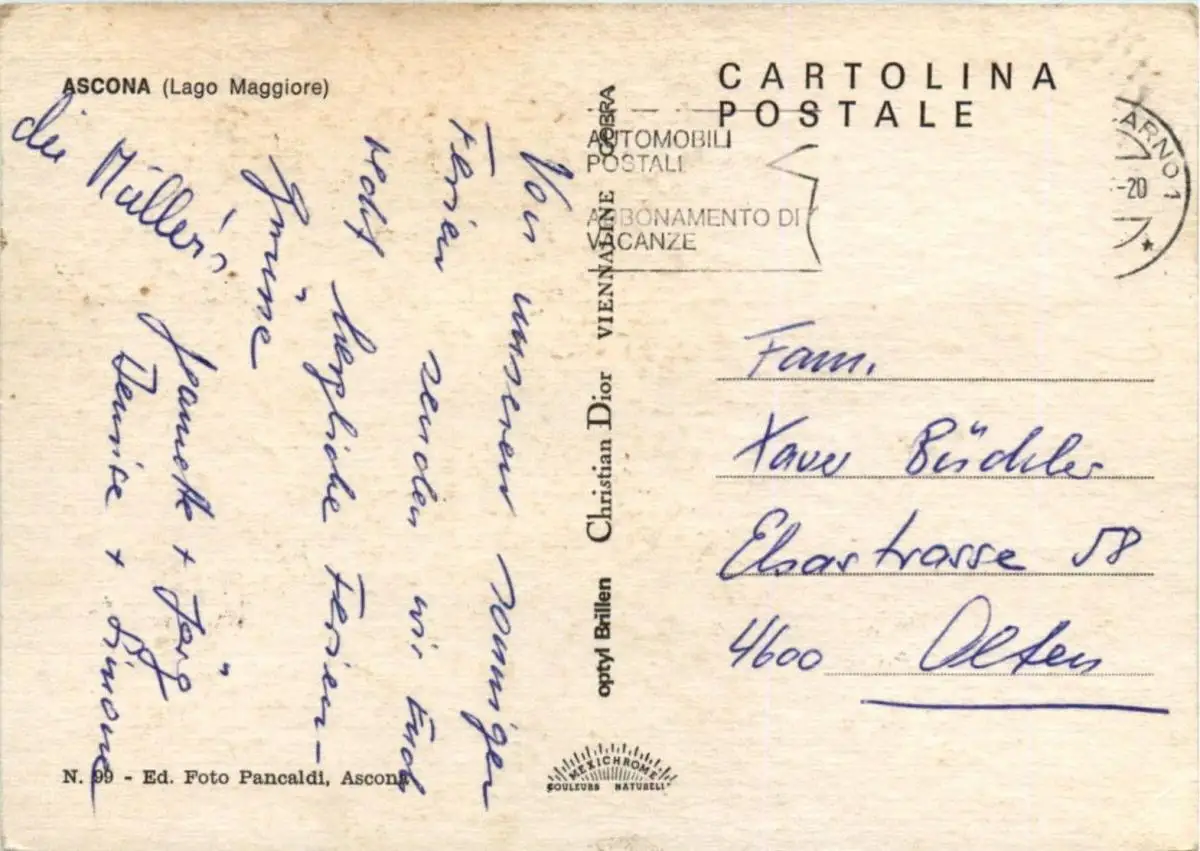 ASCONA (Lago Maggiore)
CARTOLINA
POSTALE
AUTOMOBILI
POSTALI
ABBONAMENTO DI
VACANZE
ARNO 1
-20
Von unseren sonnigen
Ferien senden wir Euch
recht herzliche Ferien-
grüsse
die Müller's
Jeanette + Jörg
Denise + Simone
optyl Brillen Christian Dior VIENNALINE COBRA
Fam.
Xaver Büchler
Elsastrasse 58
4600 Olten
N. 99 - Ed. Foto Pancaldi, Ascona
MEXICHROME
COULEURS NATURELL